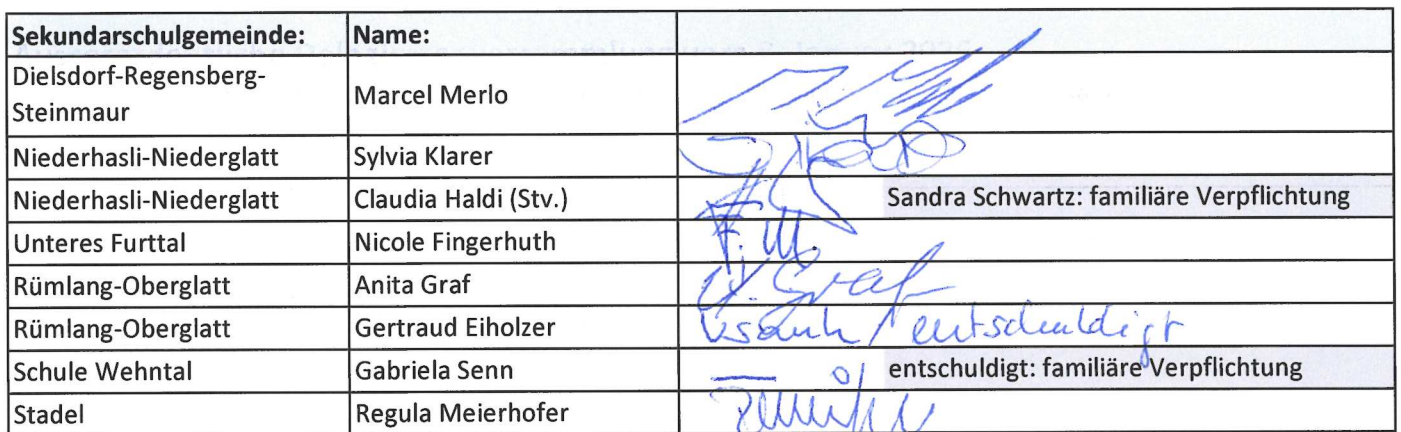 Sekundarschulgemeinde: Name:
Dielsdorf-Regensberg-
Steinmaur Marcel Merlo
Niederhasli-Niederglatt Sylvia Klarer
Niederhasli-Niederglatt Claudia Haldi (Stv.) Sandra Schwartz: familiäre Verpflichtung
Unteres Furttal Nicole Fingerhuth
Rümlang-Oberglatt Anita Graf A. Graf
Rümlang-Oberglatt Gertraud Eiholzer krank / entschuldigt
Schule Wehntal Gabriela Senn — entschuldigt: familiäre Verpflichtung
Stadel Regula Meierhofer